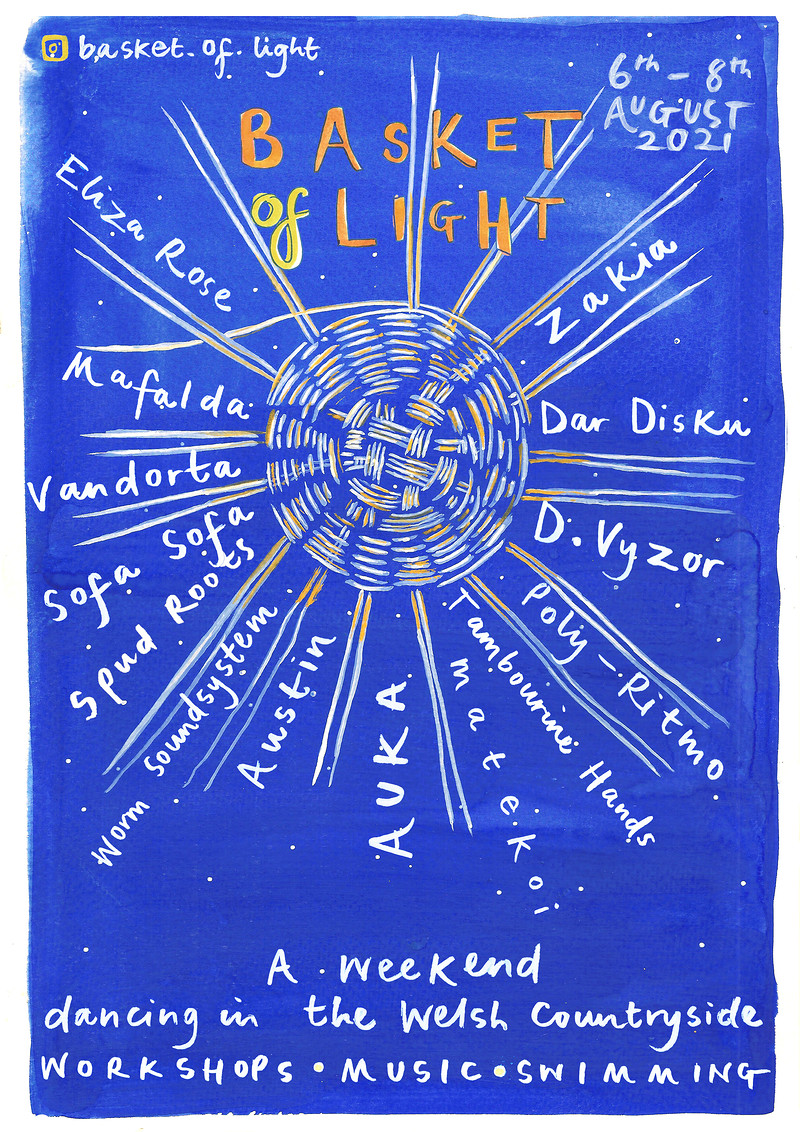 basket.of.light
6th - 8th
AUGUST
2021
BASKET
of LIGHT
Eliza Rose
Zakia
Mafalda
Dar Disku
Vandorta
D. Vyzor
Sofa Sofa
Spud Roots
Poly-Ritmo
Worm Soundsystem
Tambourine Hands
Austin
AUKA
matekoi
A weekend
dancing in the Welsh Countryside
WORKSHOPS • MUSIC • SWIMMING